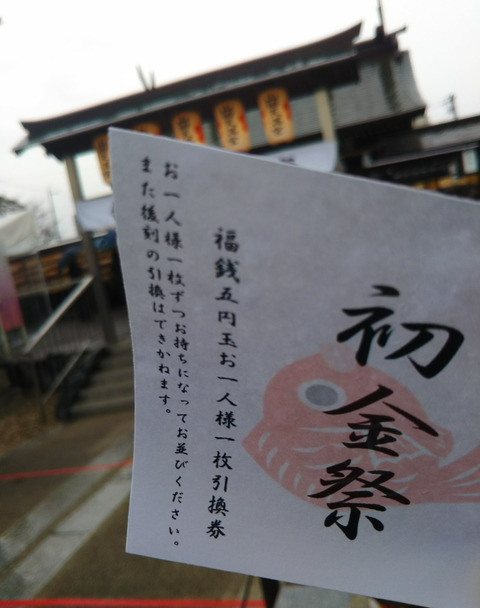 初金祭
福銭五円玉お一人様一枚引換券
お一人様一枚ずつお持ちになってお並びください。
また後刻の引換はできかねます。